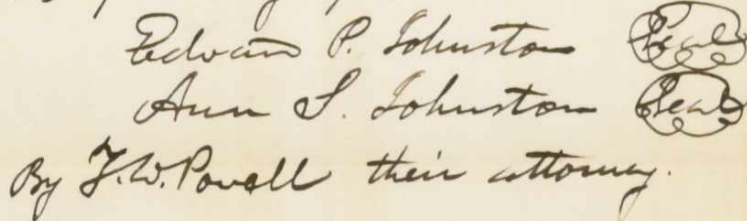 Edward P. Johnston Seal
Ann S. Johnston Seal
By F. W. Powell their attorney.